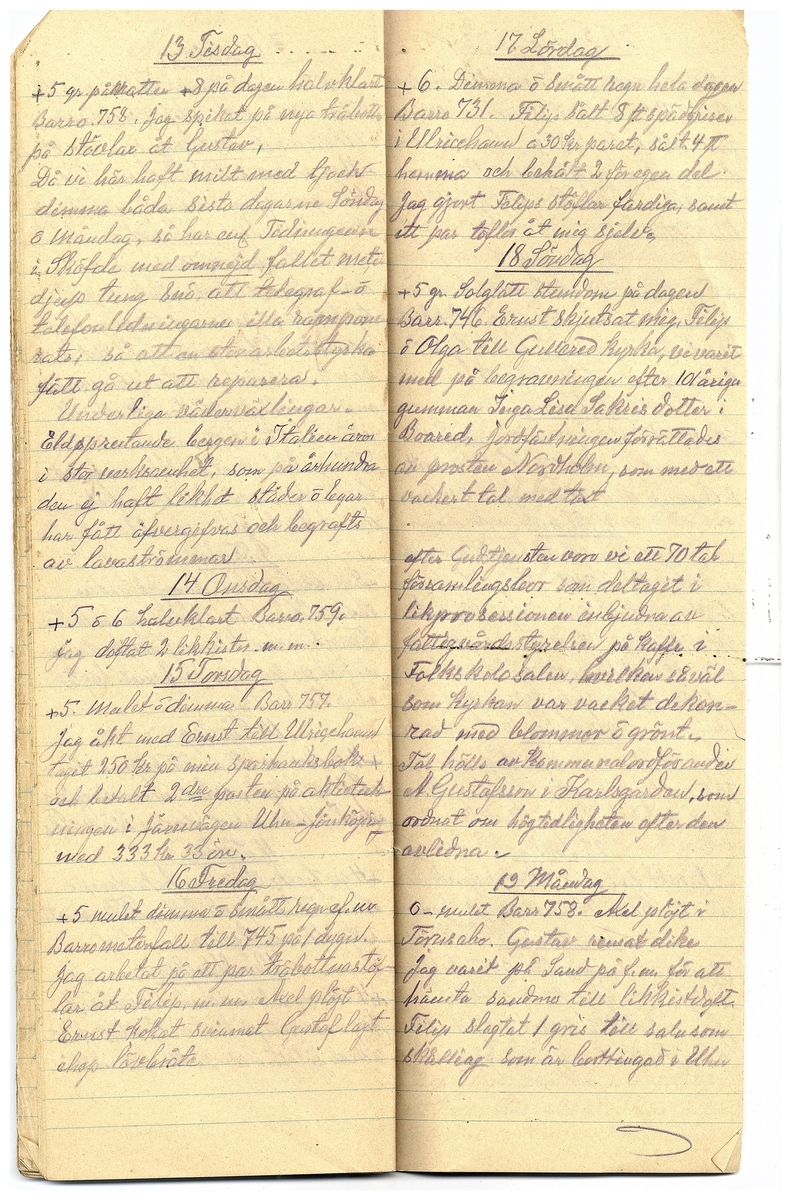 13 Tisdag
+5 gr. på natten +8 på dagen halvklart
Barro. 758. Jag spikat på nya träbott
på stövlar åt Gustav,
Då vi här haft milt med tjock
dimma båda sista dagarne Söndag
o Måndag, så har enl Tidningarne
i Sköfde med omnejd fallet meter
djup tung snö, att telegraf- o
telefonledningarne illa rampone
rats, så att en stor arbetsstyrka
fått gå ut att reparera.
Underliga väderväxlingar.
Eldsprutande bergen i Italien äro
i stor verksamhet, som på århundra
den ej haft likhet städer o byar
har fått öfvergifvas och begrafts
av lavaströmmenar
14 Onsdag
+5 o 6 halvklart Barro. 759.
jag doftat 2 likkistor m.m.
15 Torsdag
+5. Mulet o dimma Barr 757.
Jag åkt med Ernst till Ulricehamn
tagit 250 Kr på min sparbanksbok
och betalt 2dre posten på aktieteck-
ningen i Järnvägen Uhn-Jönköping
med 333 kr 33 ör.
16 Fredag
+5 mulet dimma o smått regn ef.m
Barrometerfall till 745 på 1 dygn.
Jag arbetat på ett par träbottnastöf-
lar åt Filip, m.m. Axel plöjt
Ernst kokat svinmat Gustof lagt
ihop lövbråte
17 Lördag
+6. Dimma o smått regn hela dagen
Barro 731. Filip sålt 8 st spädgriser
i Ulricehamn a 30 kr paret, sålt 4 st
hemma och behålt 2 för egen del.
Jag gjort Filips stöflar färdiga, samt
ett par tofflor åt mig sjelv.
18 Söndag
+5 gr. Solglätt stundom på dagen
Barr. 746. Ernst skjutsat mig, Filip
o Olga till Gullered kyrka, vi varit
med på begravningen efter 101 åriga
gumman Inga Lisa Sakrisdotter i
Boared, Jordfästningen förrättades
av prosten Nordholm, som med ett
vackert tal med text
efter Gudstjensten voro vi ett 70 tal
församlingsbor som deltaget i
likprosessionen inbjudna av
fattigvårdsstyrelsen på kaffe i
Folkskolesalen, hvilken såväl
som kyrkan var vacket dekon-
rad med blommor o grönt.
Tal hölls av kommunalordföranden
A Gustafsson i Karlsgården, som
ordnat om högtidligheten efter den
avlidna.
19 Måndag
0 - mulet Barr 758. Axel plöjt i
Gustav rensat dike
Jag varit på Sand på f.m. för att
hämta till likkistdoft.
Filip slagtat 1 gris till salu som
som är borttingad i Uhn